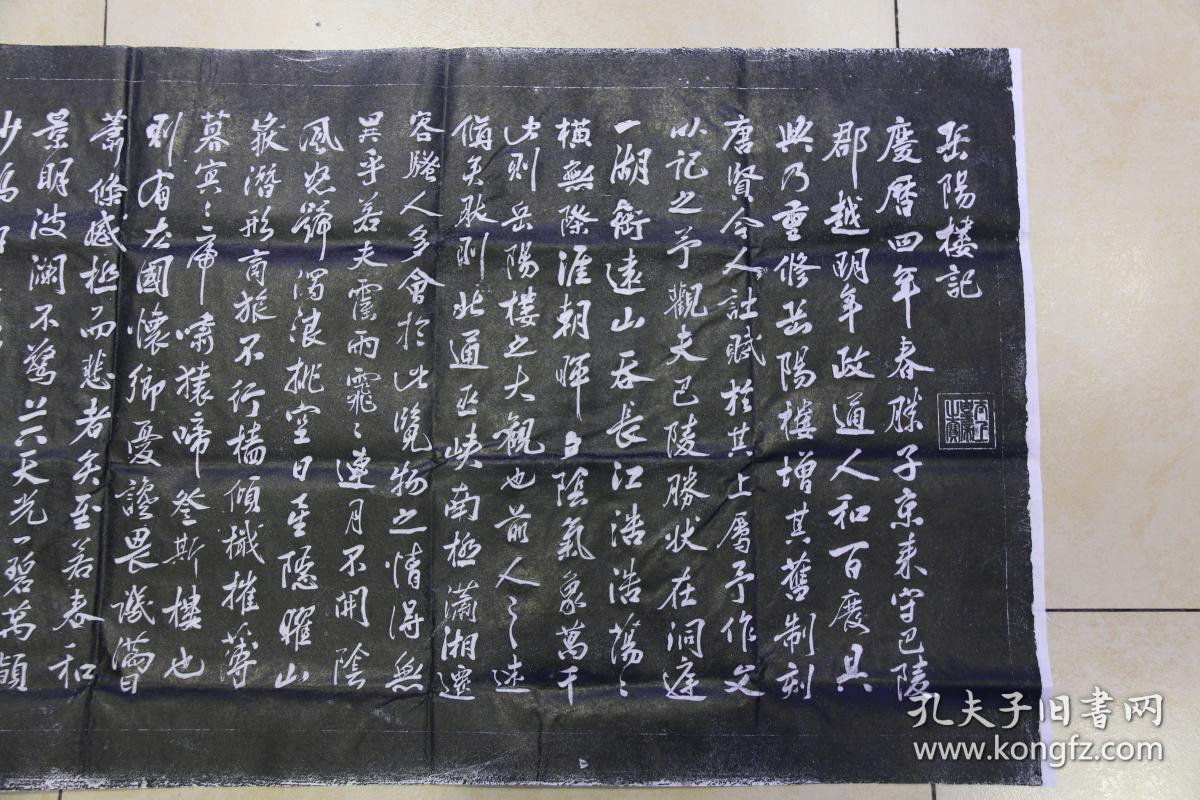 岳陽樓記
慶曆四年春滕子京来守巴陵
郡越明年政通人和百廢具
興乃重修岳陽樓增其舊制刻
唐賢今人詩賦於其上属予作文
以記之予觀夫巴陵勝状在洞庭
一湖銜遠山吞長江浩浩蕩〻
橫無際涯朝暉夕陰氣象萬千
此則岳陽樓之大觀也前人之述
備矣然則北通巫峽南極瀟湘遷
客騷人多會於此覽物之情得無
異乎若夫霪雨霏〻連月不開陰
風怒號濁浪排空日星隱曜山
嶽潛形商旅不行檣傾檝摧薄
暮冥〻虎嘯猿啼登斯樓也
則有去國懷鄉憂讒畏譏滿目
蕭條感極而悲者矣至若春和
景明波瀾不驚上下天光一碧萬頃
沙鷗
孔夫子旧書网
www.kongfz.com